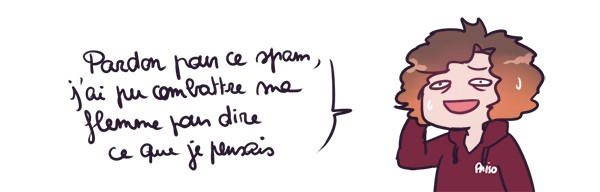 Pardon pour ce spam,
j'ai pu combattre ma
flemme pour dire
ce que je pensais
Paiso